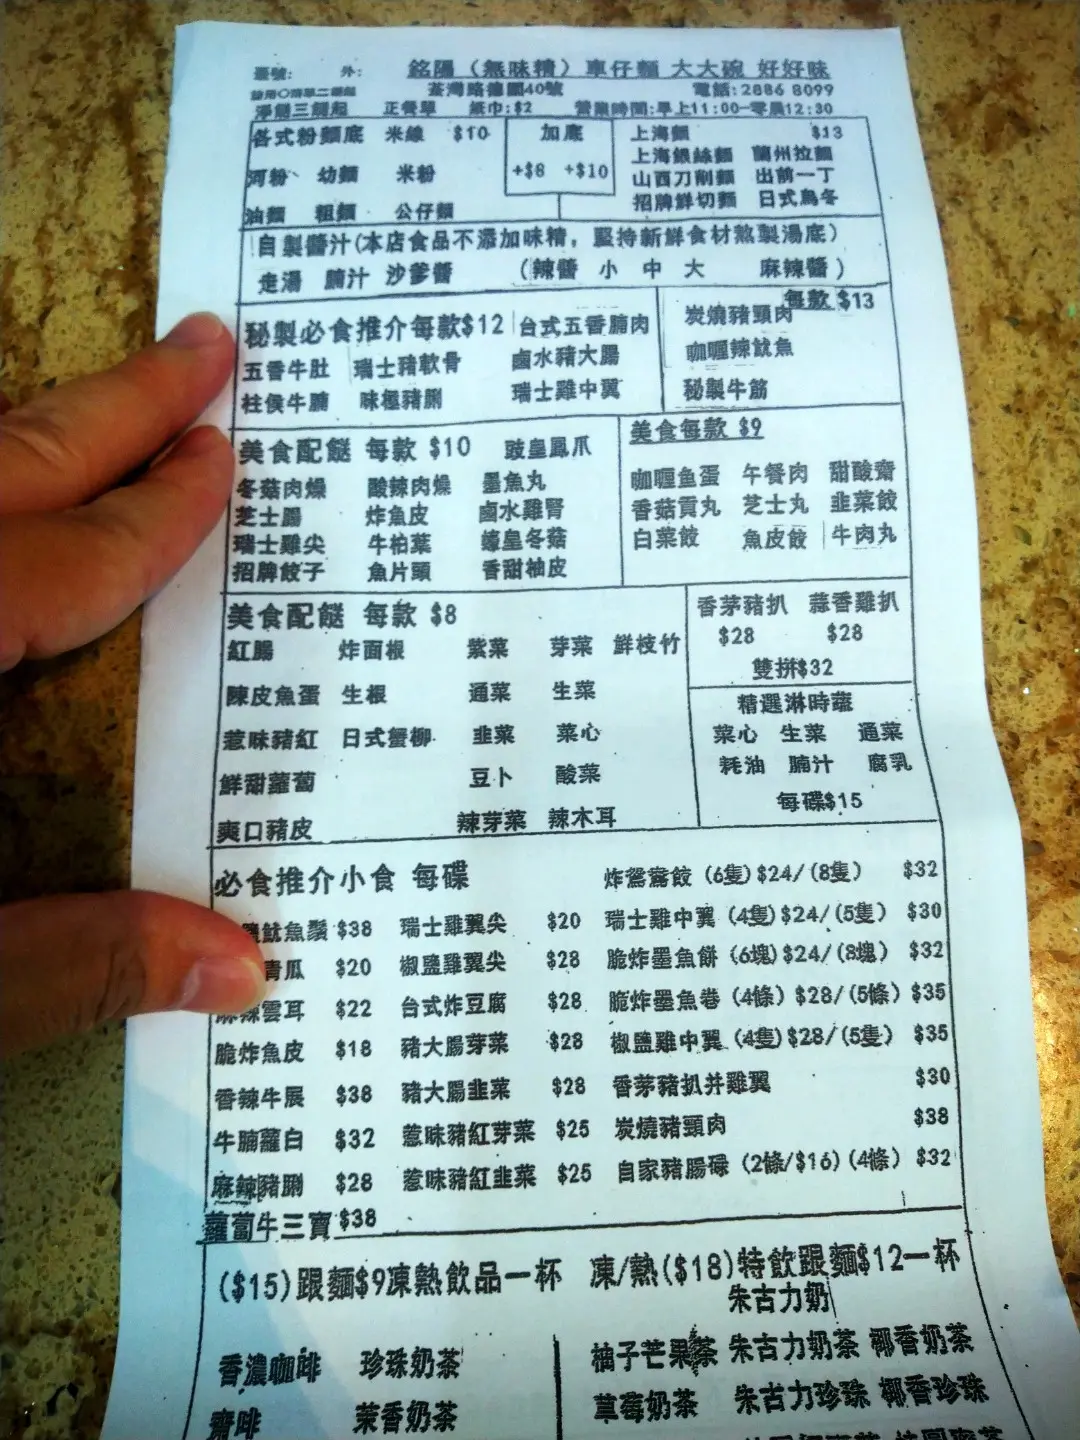 臺號: 外: 銘陽（無味精）車仔麵 大大碗 好好味
荃灣路德圍40號 電話:2886 8099
淨麵三餸起 正餐單 紙巾:$2 營業時間:早上11:00-零晨12:30
各式粉麵底 米線 $10 加底 上海麵 $13
上海銀絲麵 蘭州拉麵
河粉、 幼麵 米粉 +$8 +$10 山西刀削麵 出前一丁
招牌鮮切麵 日式烏冬
油麵 粗麵 公仔麵
自製醬汁(本店食品不添加味精，堅持新鮮食材熬製湯底)
走湯 腩汁 沙爹醬 (辣醬 小 中 大 麻辣醬)
秘製必食推介每款$12 台式五香腩肉
五香牛肚 瑞士豬軟骨 鹵水豬大腸
柱侯牛腩 味極豬脷 瑞士雞中翼
每款 $13
炭燒豬頸肉
咖喱辣魷魚
秘製牛筋
美食配餸 每款 $10 豉皇鳳爪
冬菇肉燥 酸辣肉燥 墨魚丸
芝士腸 炸魚皮 鹵水雞腎
瑞士雞尖 牛柏葉 蠔皇冬菇
招牌餃子 魚片頭 香甜柚皮
美食每款 $9
咖喱鱼蛋 午餐肉 甜酸齋
香菇貢丸 芝士丸 韭菜餃
白菜餃 魚皮餃 牛肉丸
美食配餸 每款 $8
紅腸 炸面根 紫菜 芽菜 鮮枝竹
陳皮魚蛋 生根 通菜 生菜
惹味豬紅 日式蟹柳 韭菜 菜心
鮮甜蘿蔔 豆卜 酸菜
爽口豬皮 辣芽菜 辣木耳
香茅豬扒 蒜香雞扒
$28 $28
雙拼$32
精選淋時蔬
菜心 生菜 通菜
耗油 腩汁 腐乳
每碟$15
必食推介小食 每碟 炸鴛鴦餃 (6隻)$24/(8隻) $32
魷魚鬚 $38 瑞士雞翼尖 $20 瑞士雞中翼 (4隻)$24/(5隻) $30
青瓜 $20 椒鹽雞翼尖 $28 脆炸墨魚餅 (6塊)$24/(8塊) $32
麻辣雲耳 $22 台式炸豆腐 $28 脆炸墨魚卷 (4條)$28/(5條) $35
脆炸魚皮 $18 豬大腸芽菜 $28 椒鹽雞中翼 (4隻)$28/(5隻) $35
香辣牛展 $38 豬大腸韭菜 $28 香茅豬扒并雞翼 $30
牛腩蘿白 $32 惹味豬紅芽菜 $25 炭燒豬頸肉 $38
麻辣豬脷 $28 惹味豬紅韭菜 $25 自家豬腸碌 (2條/$16)(4條) $32
蘿蔔牛三寶 $38
($15)跟麵$9凍熱飲品一杯 凍/熱($18)特飲跟麵$12一杯
朱古力奶
香濃咖啡 珍珠奶茶 柚子芒果茶 朱古力奶茶 椰香奶茶
齋啡 茉香奶茶 草莓奶茶 朱古力珍珠 椰香珍珠